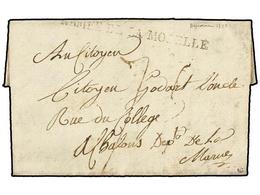 MOSELLE
Au Citoyen
Citoyen Godart L'oncle
Rue du College
A Chalons Dept De La
Marne